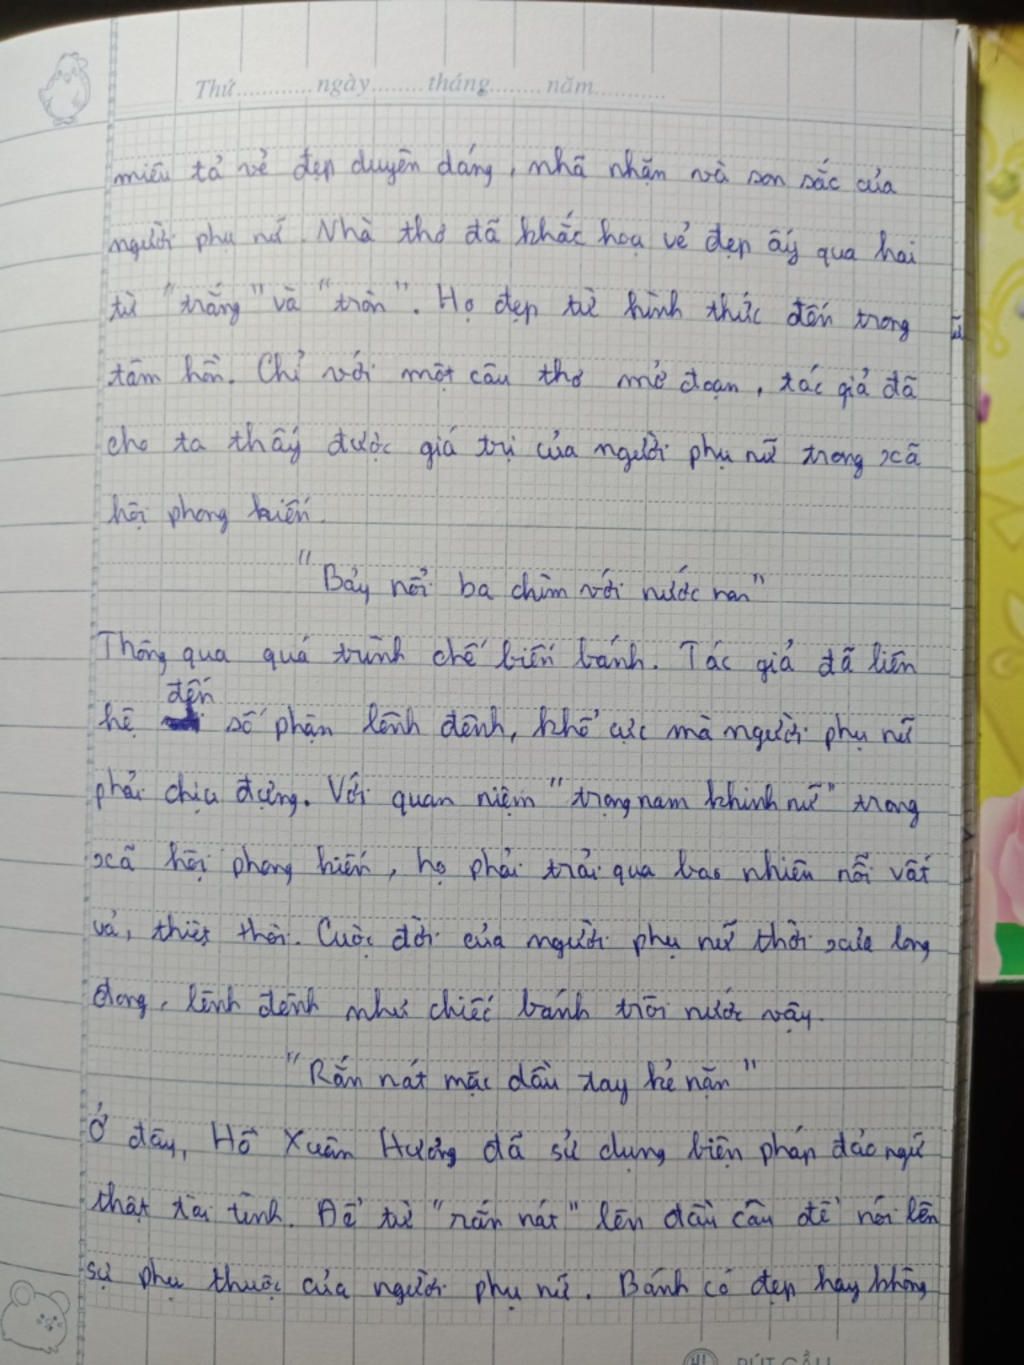 Thứ............ngày........tháng........năm...........
miêu tả vẻ đẹp duyên dáng, nhã nhặn và son sắc của
người phụ nữ. Nhà thơ đã khắc hoạ vẻ đẹp ấy qua hai
từ "trắng" và "tròn". Họ đẹp từ hình thức đến trong
tâm hồn. Chỉ với một câu thơ mở đoạn, tác giả đã
cho ta thấy được giá trị của người phụ nữ trong xã
hội phong kiến.
"Bảy nổi ba chìm với nước non"
Thông qua quá trình chế biến bánh. Tác giả đã liên
hệ đến số phận lênh đênh, khổ cực mà người phụ nữ
phải chịu đựng. Với quan niệm "trọng nam khinh nữ" trong
xã hội phong kiến, họ phải trải qua bao nhiên nỗi vất
vả, thiệt thòi. Cuộc đời của người phụ nữ thời xưa long
đong, lênh đênh như chiếc bánh trôi nước vậy.
"Rắn nát mặc dầu tay kẻ nặn"
Ở đây, Hồ Xuân Hương đã sử dụng biện pháp đảo ngữ
thật tài tình. Để từ "rắn nát" lên đầu câu để nói lên
sự phụ thuộc của người phụ nữ. Bánh có đẹp hay không